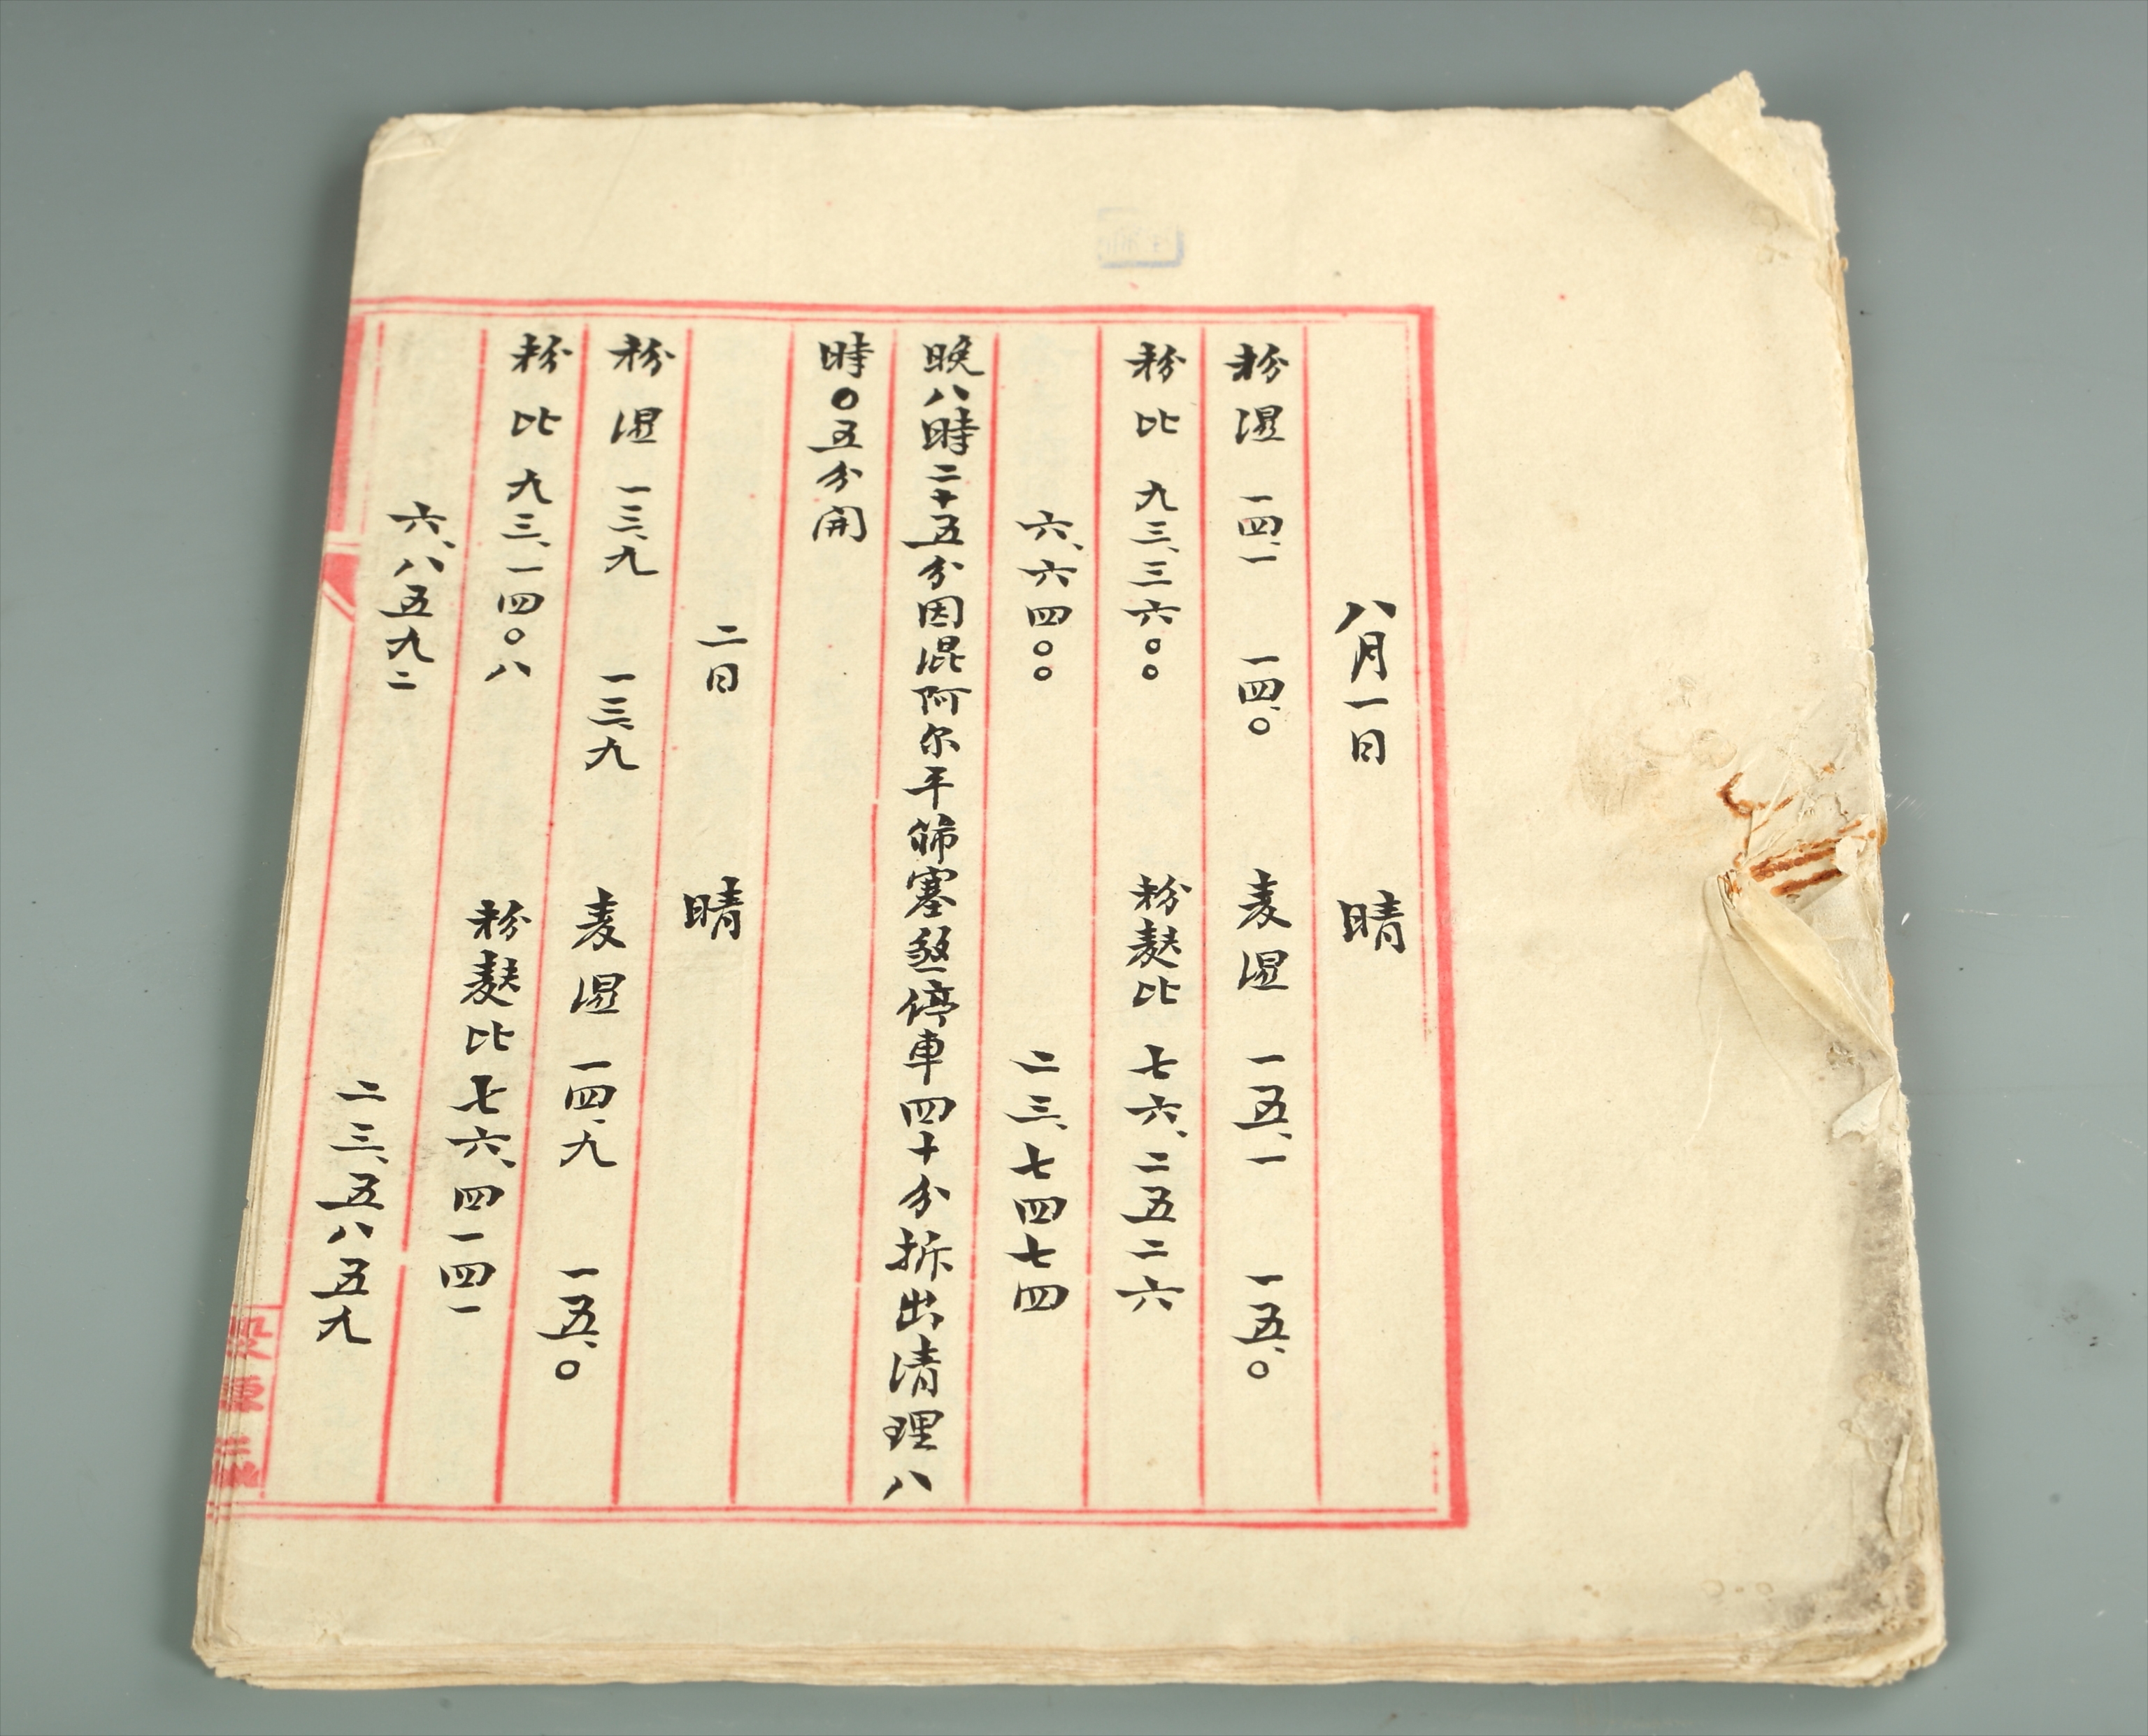 八月一日 晴
粉湿 一四、一 一四、〇 麦湿 一五、一 一五、〇
粉比 九三、三六〇〇 粉麸比 七六、二五二六
六、六四〇〇 二三、七四七四
晚八時二十五分因混阿尔平筛塞煞停車四十分拆出清理八
時〇五分開
二日 晴
粉湿 一三、九 一三、九 麦湿 一四、九 一五、〇
粉比 九三、一四〇八 粉麸比 七六、四一四一
六、八五九二 二三、五八五九